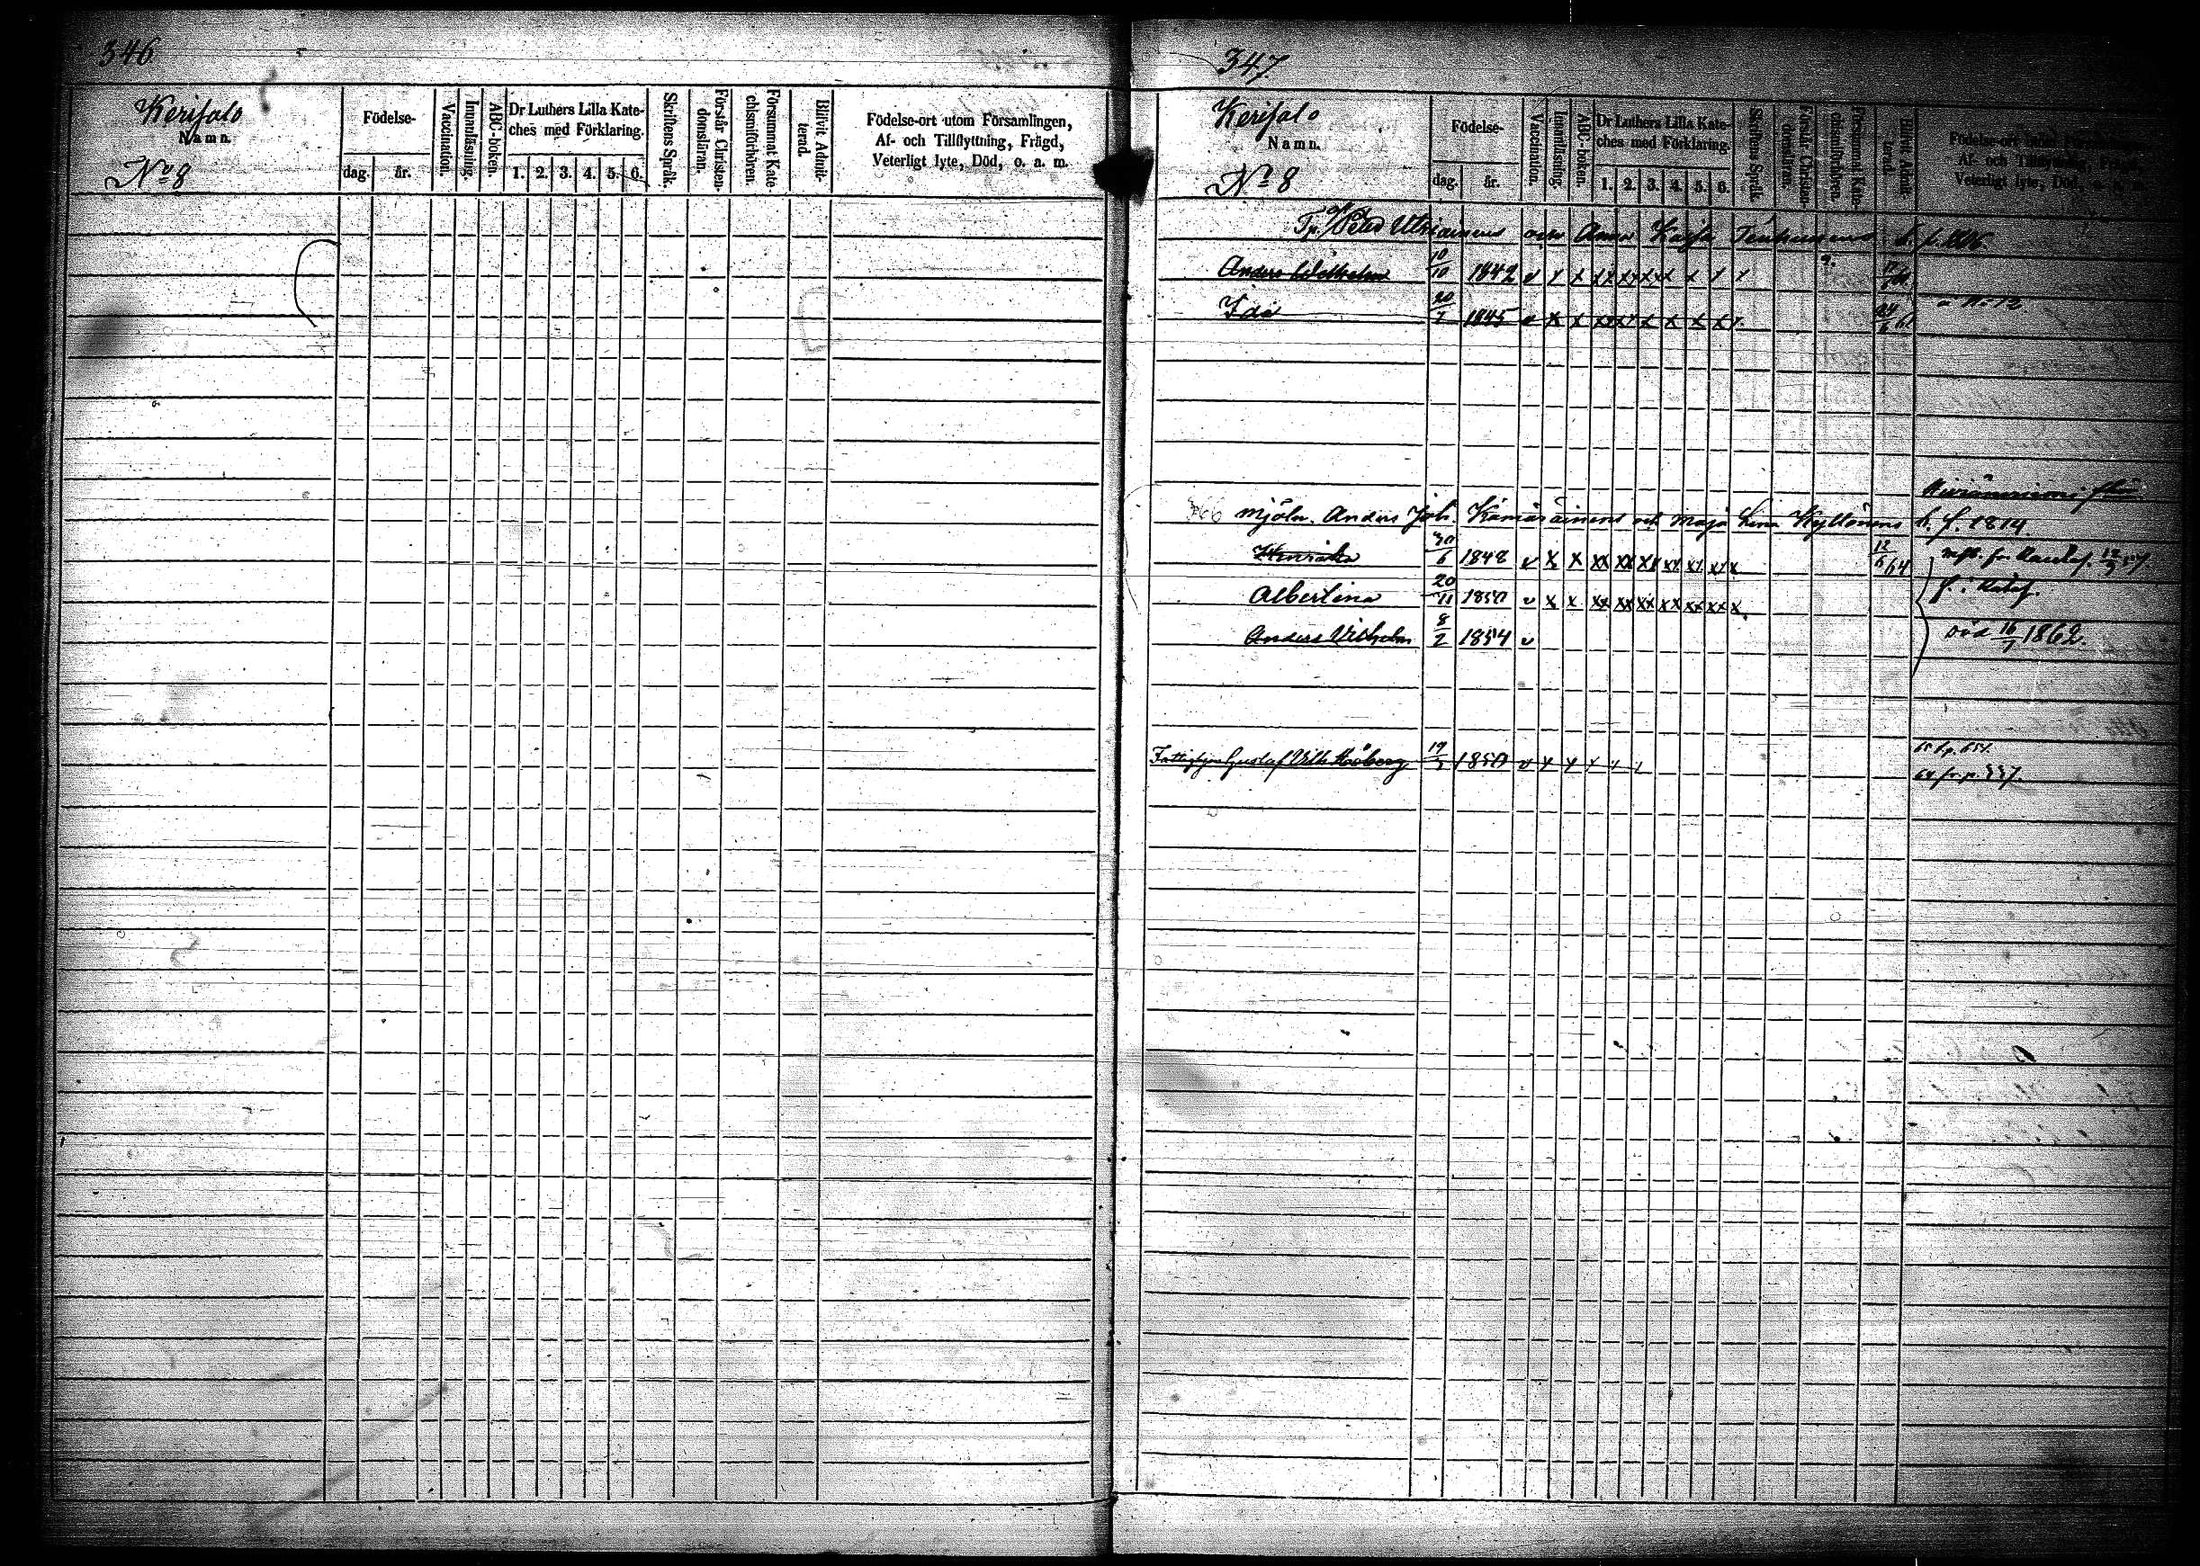 346
Kerisalo
Namn.
No 8
Födelse-
dag. år.
Vaccination.
Innanläsning.
ABC-boken.
Dr Luthers Lilla Kate-
ches med Förklaring.
1. 2. 3. 4. 5. 6.
Skriftens Språk.
Förstår Christen-
domsläran.
Försummat Kate-
chismiförhören.
Blifvit Admit-
terad.
Födelse-ort utom Församlingen,
Af- och Tillflyttning, Frägd,
Veterligt lyte, Död, o. a. m.
347
Kerisalo
Namn.
No 8
Födelse-
dag. år.
Vaccination.
Innanläsning.
ABC-boken.
Dr Luthers Lilla Kate-
ches med Förklaring.
1. 2. 3. 4. 5. 6.
Skriftens Språk.
Förstår Christen-
domsläran.
Försummat Kate-
chismiförhören.
Blifvit Admit-
terad.
Födelse-ort utom
Af- och Tillflyttning,
Veterligt lyte, Död,
och Anna Kajsa b. f.
Anders Wilhelm 10/10 1842 v x x
Ida 20/7 1845 v x x xx xx x x x x x 61
mjöln. Anders Joh. Kämäräinens och Maja Lena Kyllönens b. f. 1814.
Henrika 30/6 1848 v x x xx xx xx xx xx xx x 12/6 64
Albertina 20/11 1850 v x x xx xx xx xx xx xx x
Anders Vilhelm 8/2 1854 v död 16/7 1862.
65 t. p. 651.
Gustaf Vilh. 1850 v x x x
64 fr. p. 337.